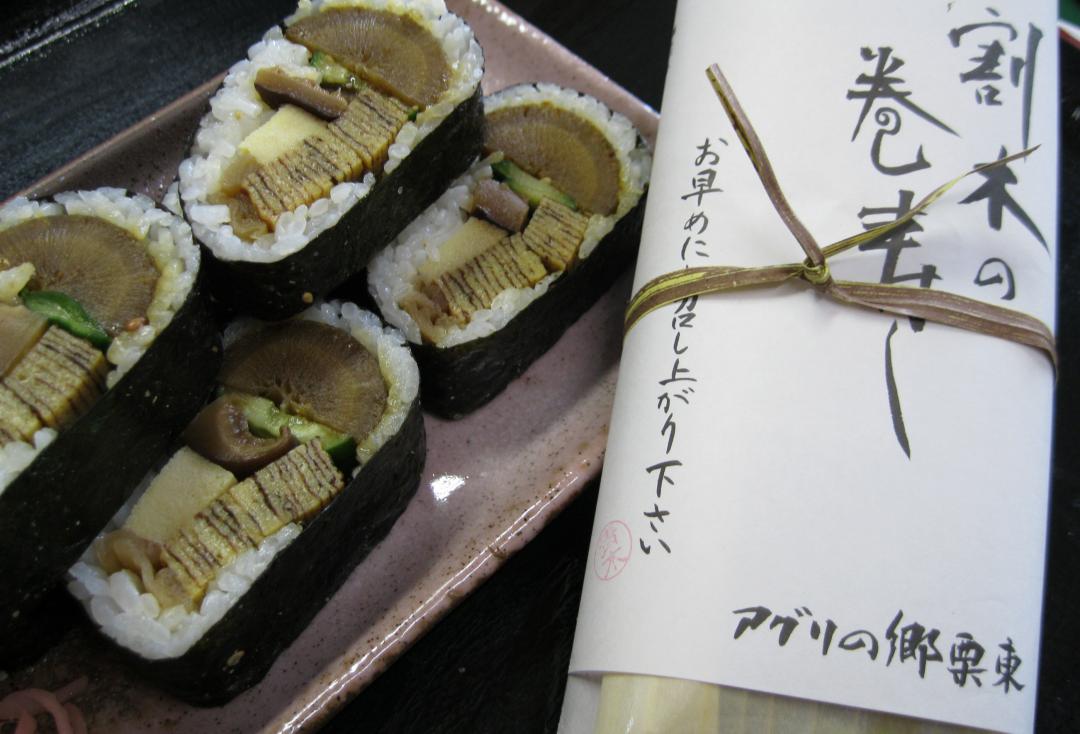 割木の
巻寿し
お早めにお召し上がり下さい
アグリの郷栗東